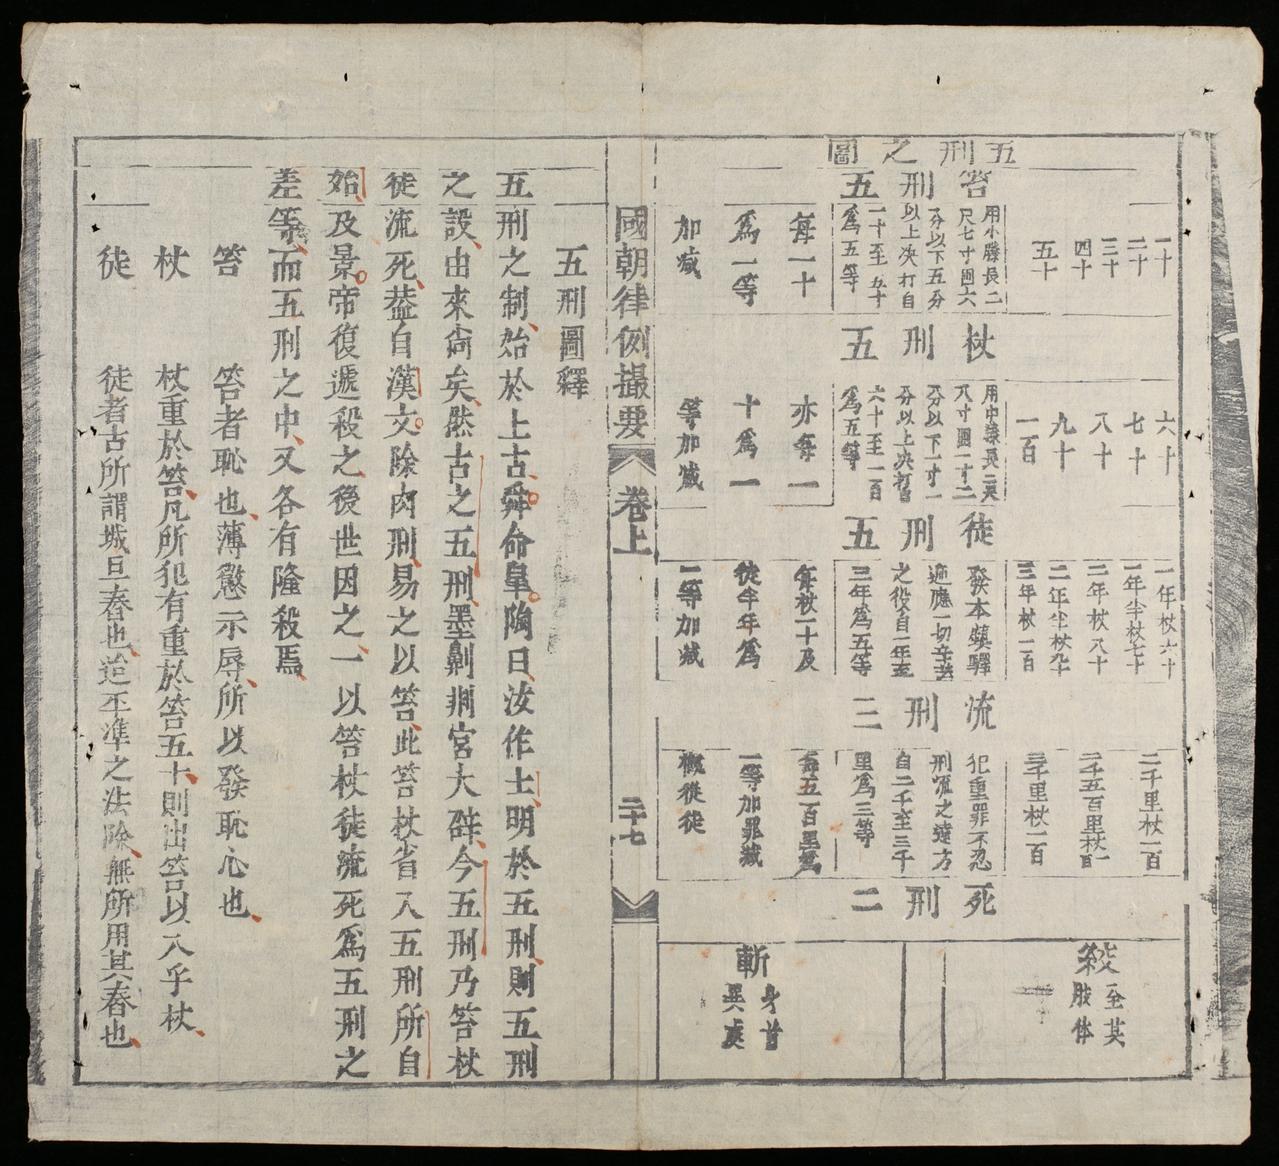 五刑之圖
笞刑五
一十
二十
三十
四十
五十
用小籐長二
尺七寸圓六
分以下五分
以上决打自
一十至五十
爲五等
每一十
爲一等
加减
杖刑五
六十
七十
八十
九十
一百
用中籐長二
尺八寸圓一寸二
分以下一寸一
分以上决打自
六十至一百
爲五等
亦每一
十爲一
等加减
徒刑五
一年杖六十
一年半杖七十
二年杖八十
二年半杖九十
三年杖一百
發本鎭驛
遞應一切辛苦
之役自一年至
三年爲五等
每杖一十及
徒半年爲
一等加减
流刑三
二千里杖一百
二千五百里杖一百
三千里杖一百
犯重罪不忍
刑流之遠方
自二千至三千
里爲三等
每五百里爲
一等加罪减
概從徒
死刑二
絞
全其
肢体
斬
身首
異處
國朝律例撮要 卷上 二十七
五刑圖釋
五刑之制始於上古舜命皐陶曰汝作士明於五刑則五刑
之設由來尚矣然古之五刑墨劓剕宮大辟今五刑乃笞杖
徒流死葢自漢文除肉刑易之以笞此笞杖省入五刑所自
始及景帝復遞殺之後世因之一以笞杖徒流死爲五刑之
差等而五刑之中又各有隆殺焉
笞 笞者恥也薄懲示辱所以發恥心也
杖 杖重於笞凡所犯有重於笞五十則出笞以入乎杖
徒 徒者古所謂城旦舂也迨平準之法除無所用其舂也